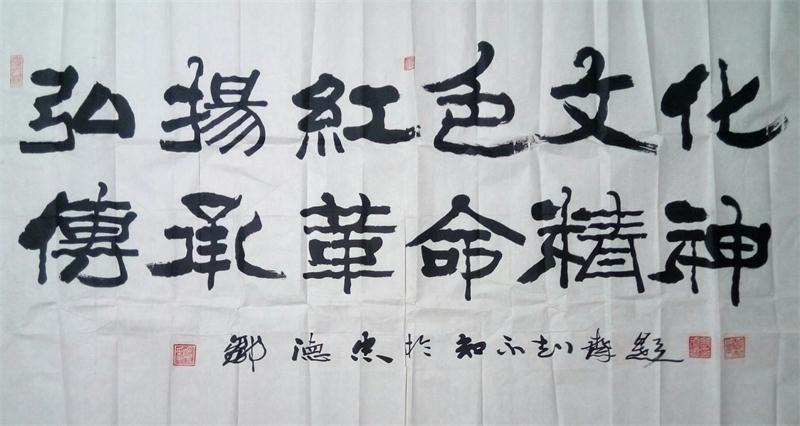 弘揚紅色文化
傳承革命精神
鄒德忠於知不知齋題